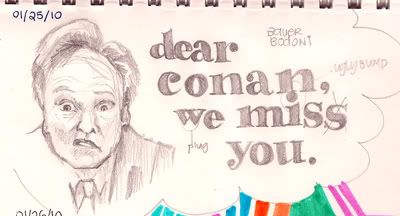 01/25/10
Bauer
Bodoni
dear
conan,
ugly bump
we miss
plug
you.
01/26/10